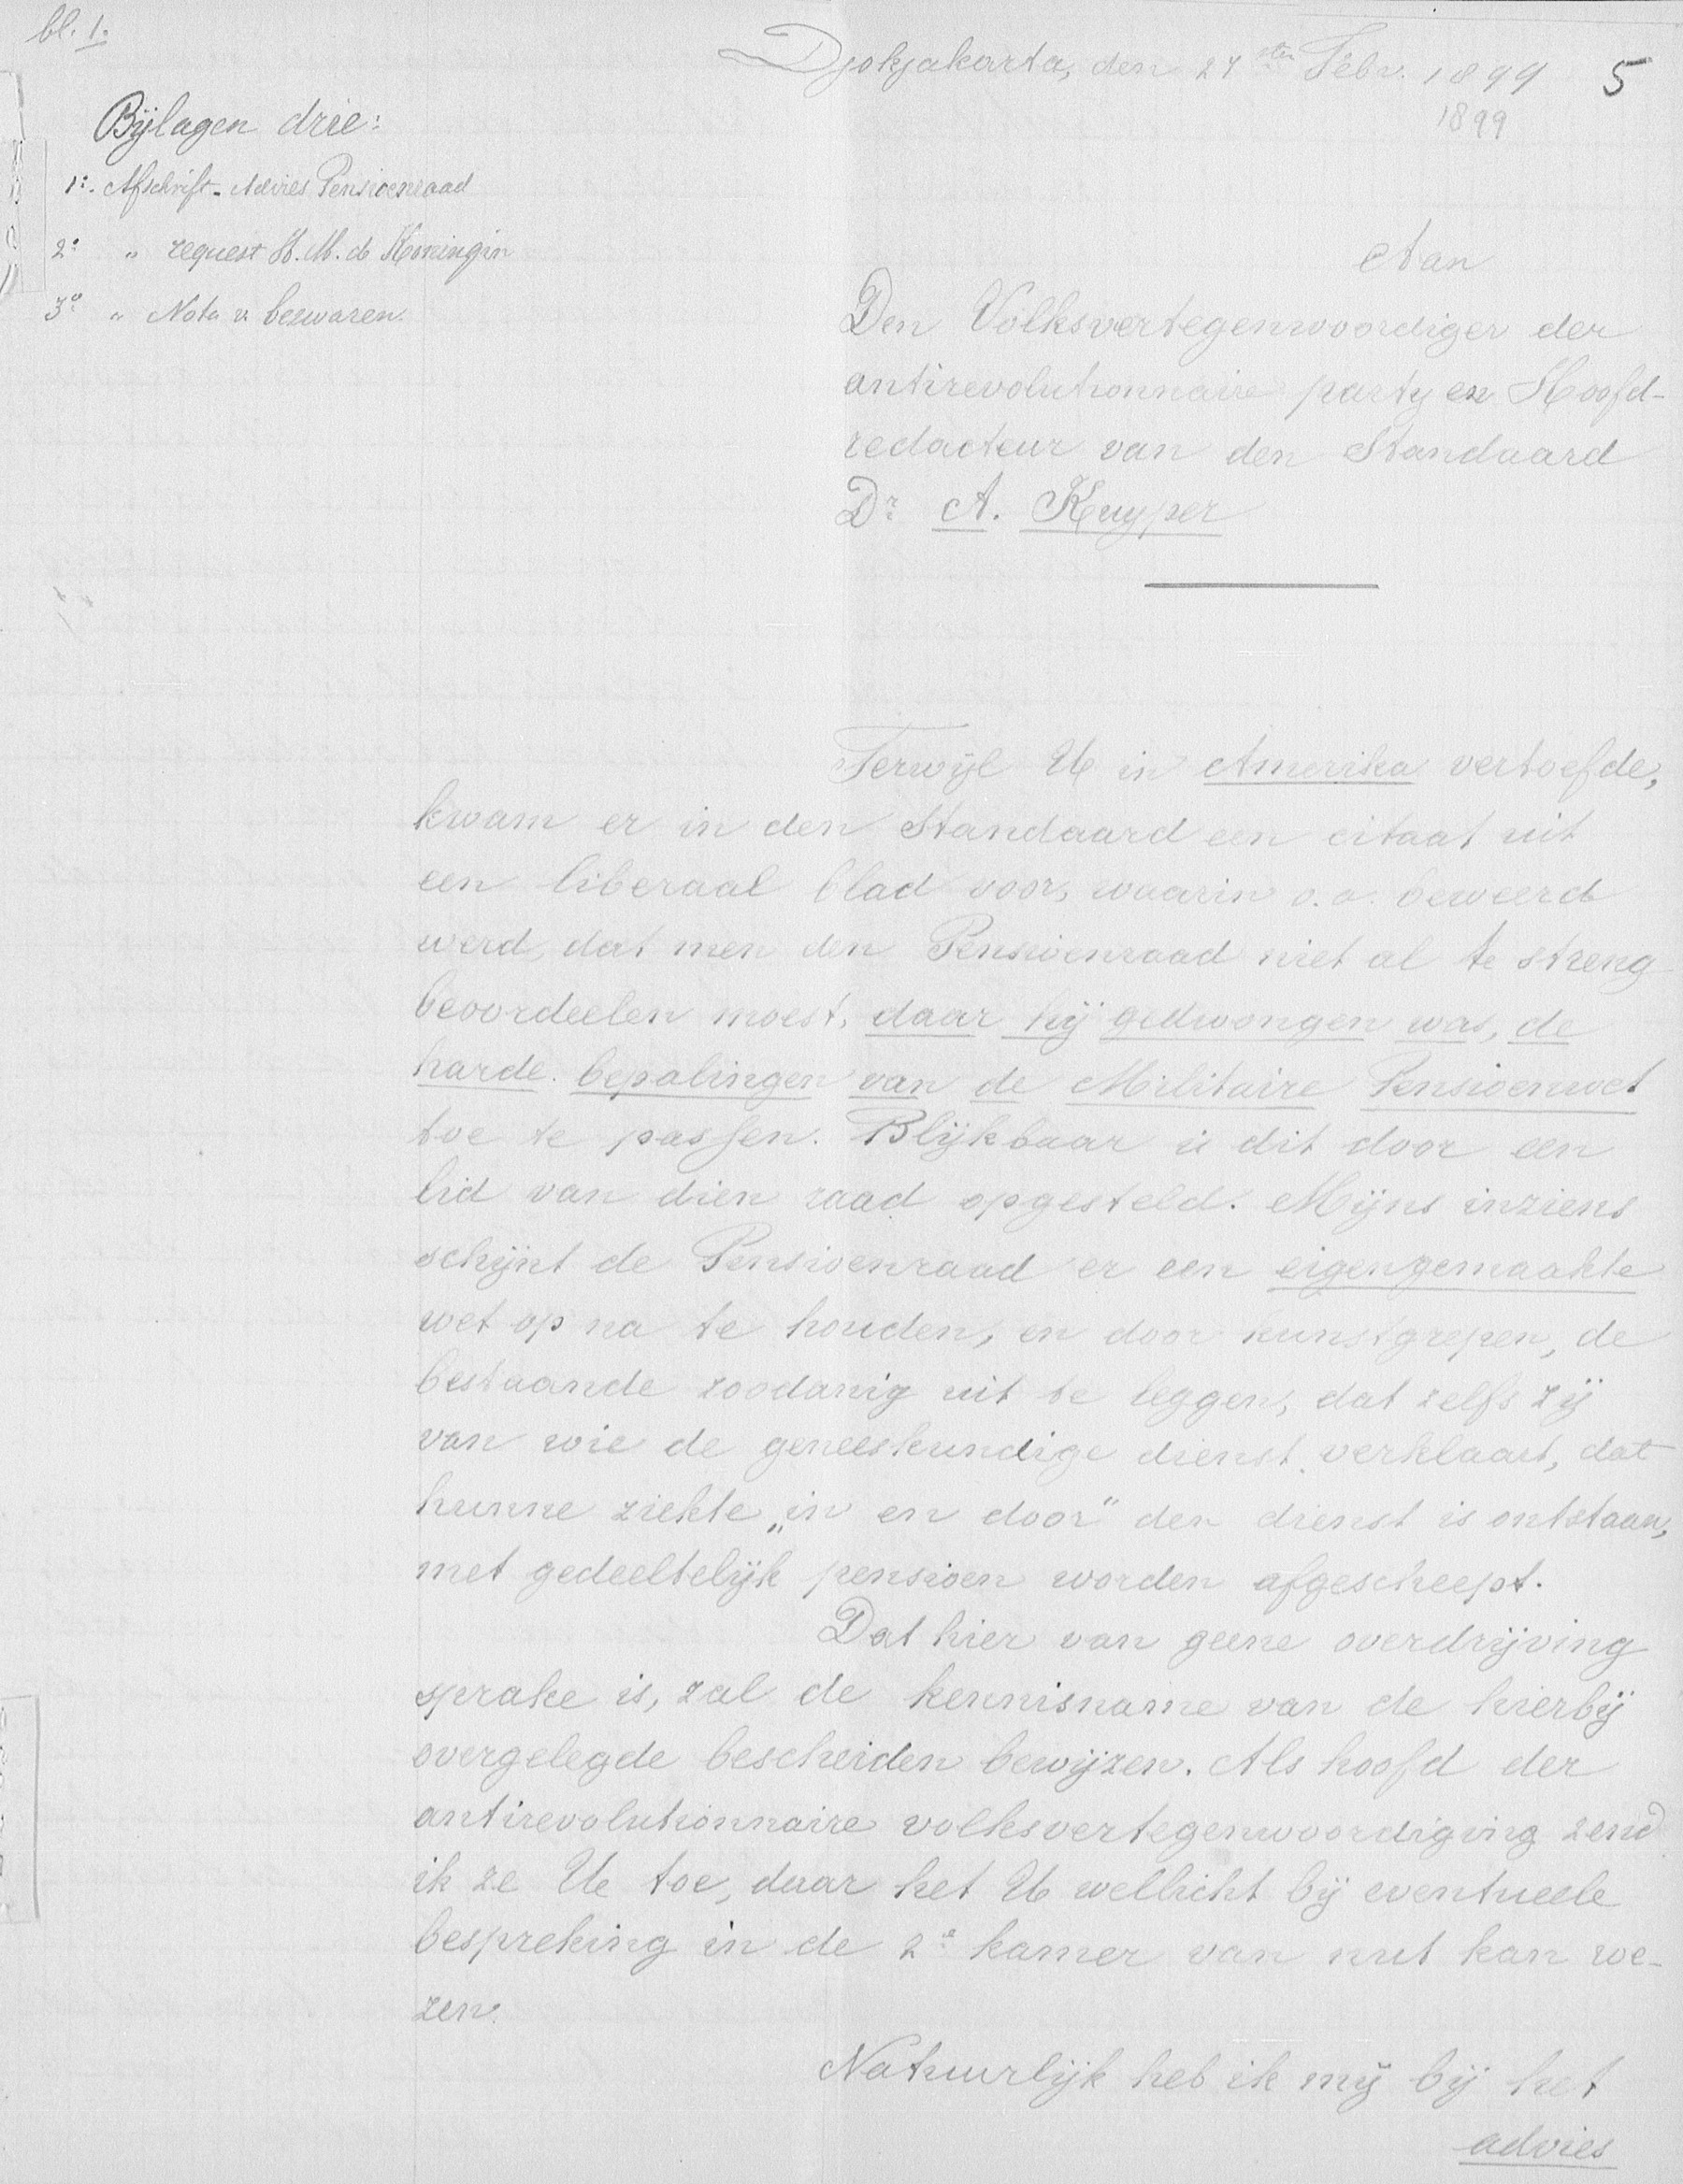 bl. 1.
Djokjakarta, den 27sten Febr. 1899
5
1899
Bijlagen drie:
1o. Afschrift - Advies Pensioenraad
2o " request H. M. de Koningin
3o " Nota v. bezwaren.
Aan
Den Volksvertegenwoordiger der
antirevolutionnaire partij en Hoofd-
redacteur van den Standaard
Dr. A. Kuyper
Terwijl U in Amerika vertoefde,
kwam er in den Standaard een citaat uit
een liberaal blad voor, waarin o.a. beweerd
werd, dat men den Pensioenraad niet al te streng
beoordeelen moest, daar hij gedwongen was, de
harde bepalingen van de Militaire Pensioenwet
toe te passen. Blijkbaar is dit door een
lid van dien raad opgesteld. Mijns inziens
schijnt de Pensioenraad er een eigengemaakte
wet op na te houden, en door kunstgrepen, de
bestaande zoodanig uit te leggen, dat zelfs zij
van wie de geneeskundige dienst verklaart, dat
hunne ziekte „in en door" den dienst is ontstaan,
met gedeeltelijk pensioen worden afgescheept.
Dat hier van geene overdrijving
sprake is, zal de kennisname van de hierbij
overgelegde bescheiden bewijzen. Als hoofd der
antirevolutionnaire volksvertegenwoordiging zend
ik ze Ue toe, daar het U wellicht bij eventueele
bespreking in de 2e kamer van nut kan we-
zen.
Natuurlijk heb ik mij bij het
advies